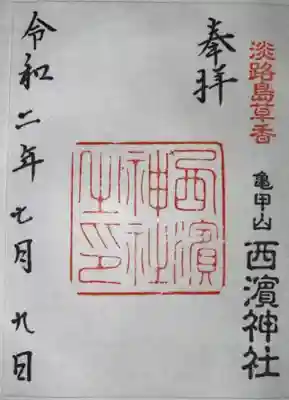 淡路島草香
亀甲山 西濵神社
奉拝
西濵
神社
之印
令和二年七月九日